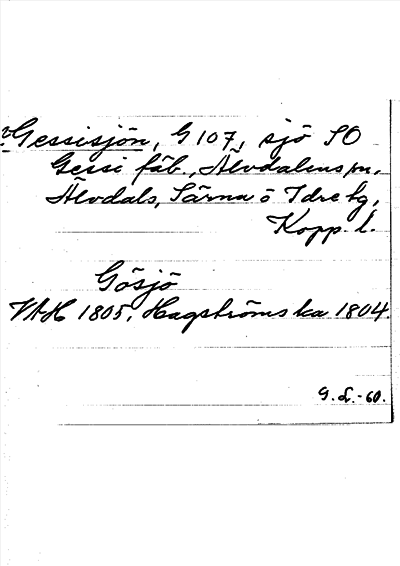 Gessisjön, G 107, sjö SO
Gessi fäb., Älvdalens sn,
Älvdals, Särna o Idre tg,
Kopp. l.
Gösjö
VAH 1805, Hagströms ka 1804
G. L. -60.